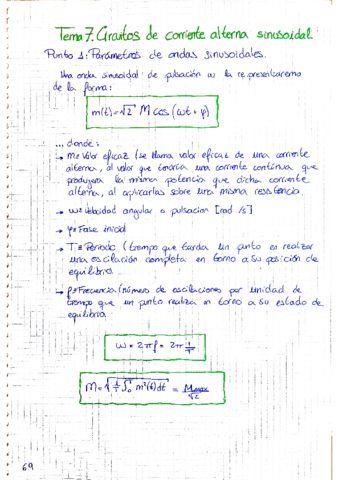 Tema 7: Circuitos de corriente alterna sinusoidal.
Punto 1: Parámetros de ondas sinusoidales.
Una onda sinusoidal de pulsación ω la representaremo
de la forma:
m(t) = √2 M cos (ωt + φ)
... donde:
→ M ≡ Valor eficaz (se llama valor eficaz de una corriente
alterna, al valor que tendría una corriente contínua que
produjera la misma potencia que dicha corriente
alterna, al aplicarlas sobre una misma resistencia.
→ ω ≡ Velocidad angular o pulsacion [rad/s]
→ φ ≡ Fase inicial
→ T ≡ Periodo (tiempo que tarda un punto en realizar
una oscilación completa en torno a su posición de
equilibrio.
→ f ≡ Frecuencia (número de oscilaciones por unidad de
tiempo que un punto realiza en torno a su estado de
equilibrio
ω = 2πf = 2π 1/T
M = √(1/T ∫₀ᵀ m²(t) dt) = Mmax/√2
69